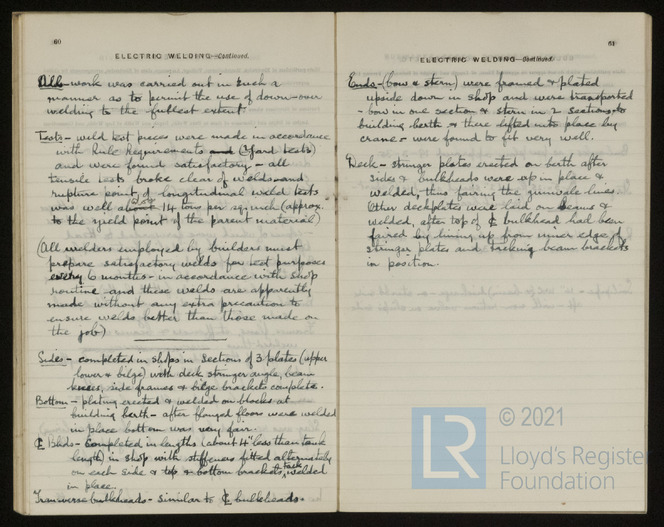 60
ELECTRIC WELDING—Continued.
All work was carried out in such a
manner as to permit the use of down-
welding to the fullest extent.
Tests - weld test pieces were made in accordance
with Rule Requirements and (Yard tests)
and were found satisfactory - all
tensile tests broke clear of welds and
rupture point of longitudinal weld tests
was well about 14 tons per sq. inch (approx.
to the yield point of the parent material)
(All welders employed by builders must
prepare satisfactory welds for test purposes
every 6 months - in accordance with shop
routine and these welds are apparently
made without any extra precaution to
ensure welds better than those made on
the job)
Sides - completed in shops in sections of 3 plates (upper
lower & bilge) with deck stringer angle, beam
knees, side frames & bilge brackets complete.
Bottom - plating erected & welded on blocks at
building berth - after flanged floors were welded
in place bottom was very fair.
℄ Bhds - Completed in lengths (about 4" less than tank
length) in shop with stiffeners fitted alternately
on each side & top & bottom brackets, tack welded
in place.
Transverse bulkheads - similar to ℄ bulkheads.
61
ELECTRIC WELDING—Continued.
Ends - (bow & stern) were framed & plated
upside down in shop and were transported
- bow in one section & stern in 2 sections to
building berth & there lifted into place by
crane & were found to fit very well.
Deck - stringer plates erected on berth after
sides & bulkheads were up in place &
welded, thus fairing the gunwale lines
Other deckplates were laid on beams &
welded, after top of ℄ bulkhead had been
faired by lining up from inner edge of
stringer plates and tacking beam brackets
in position.
LR
© 2021
Lloyd's Register
Foundation